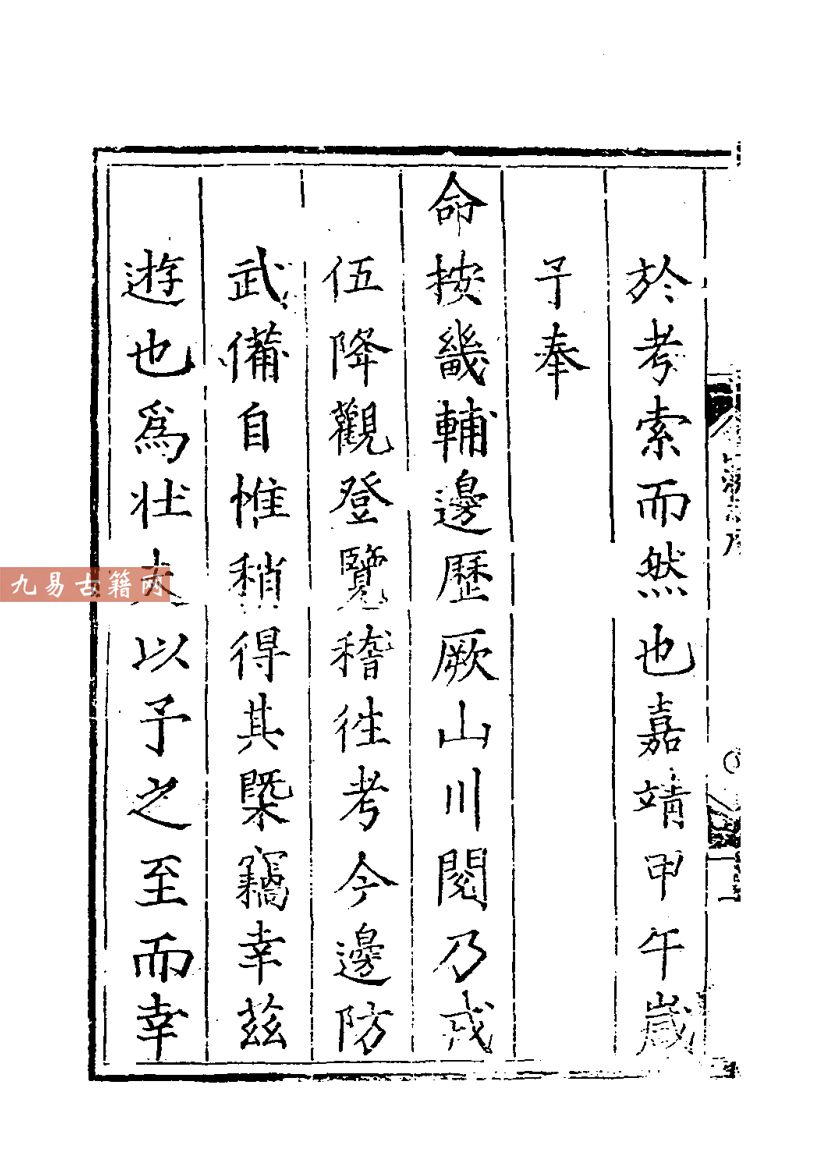 於考索而然也嘉靖甲午歲
予奉
命按畿輔邊歷厥山川閱乃戎
伍降觀登覽稽徃考今邊防
武備自惟稍得其槩竊幸茲
遊也爲壯夫以予之至而幸
九易古籍网